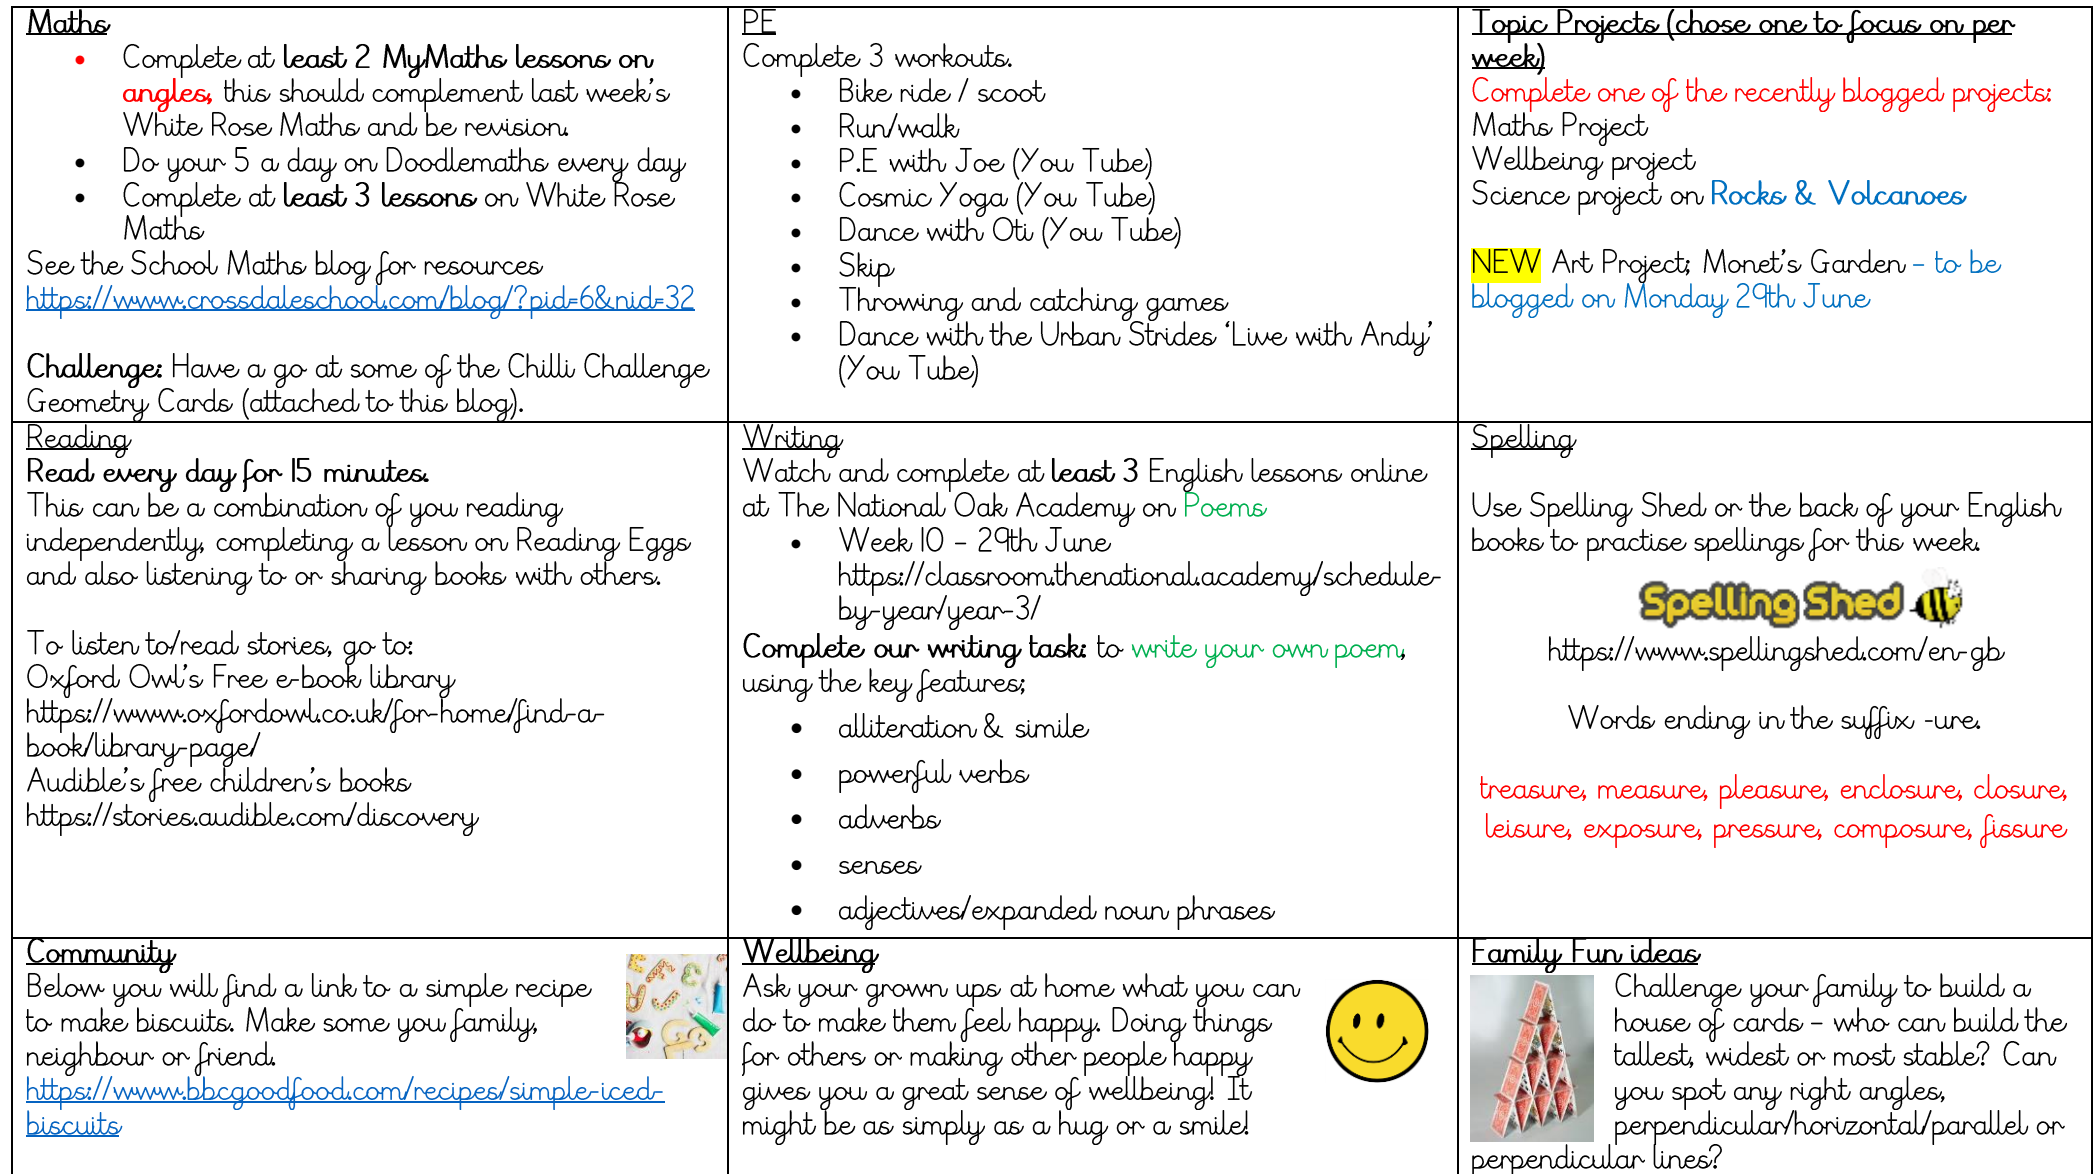 Maths
• Complete at least 2 MyMaths lessons on
angles, this should complement last week's
White Rose Maths and be revision.
• Do your 5 a day on Doodlemaths every day
• Complete at least 3 lessons on White Rose
Maths
See the School Maths blog for resources
https://www.crossdaleschool.com/blog/?pid=6&nid=32
Challenge: Have a go at some of the Chilli Challenge
Geometry Cards (attached to this blog).
PE
Complete 3 workouts.
• Bike ride / scoot
• Run/walk
• P.E with Joe (You Tube)
• Cosmic Yoga (You Tube)
• Dance with Oti (You Tube)
• Skip
• Throwing and catching games
• Dance with the Urban Strides 'Live with Andy'
(You Tube)
Topic Projects (chose one to focus on per
week)
Complete one of the recently blogged projects:
Maths Project
Wellbeing project
Science project on Rocks & Volcanoes
NEW Art Project; Monet's Garden – to be
blogged on Monday 29th June
Reading
Read every day for 15 minutes.
This can be a combination of you reading
independently, completing a lesson on Reading Eggs
and also listening to or sharing books with others.
To listen to/read stories, go to:
Oxford Owl's Free e-book library
https://www.oxfordowl.co.uk/for-home/find-a-
book/library-page/
Audible's free children's books
https://stories.audible.com/discovery
Writing
Watch and complete at least 3 English lessons online
at The National Oak Academy on Poems
• Week 10 – 29th June
https://classroom.thenational.academy/schedule-
by-year/year-3/
Complete our writing task: to write your own poem,
using the key features;
• alliteration & simile
• powerful verbs
• adverbs
• senses
• adjectives/expanded noun phrases
Spelling
Use Spelling Shed or the back of your English
books to practise spellings for this week.
Spelling Shed
https://www.spellingshed.com/en-gb
Words ending in the suffix -ure.
treasure, measure, pleasure, enclosure, closure,
leisure, exposure, pressure, composure, fissure
Community
Below you will find a link to a simple recipe
to make biscuits. Make some you family,
neighbour or friend.
https://www.bbcgoodfood.com/recipes/simple-iced-
biscuits
Wellbeing
Ask your grown ups at home what you can
do to make them feel happy. Doing things
for others or making other people happy
gives you a great sense of wellbeing! It
might be as simply as a hug or a smile!
Family Fun ideas
Challenge your family to build a
house of cards – who can build the
tallest, widest or most stable? Can
you spot any right angles,
perpendicular/horizontal/parallel or
perpendicular lines?